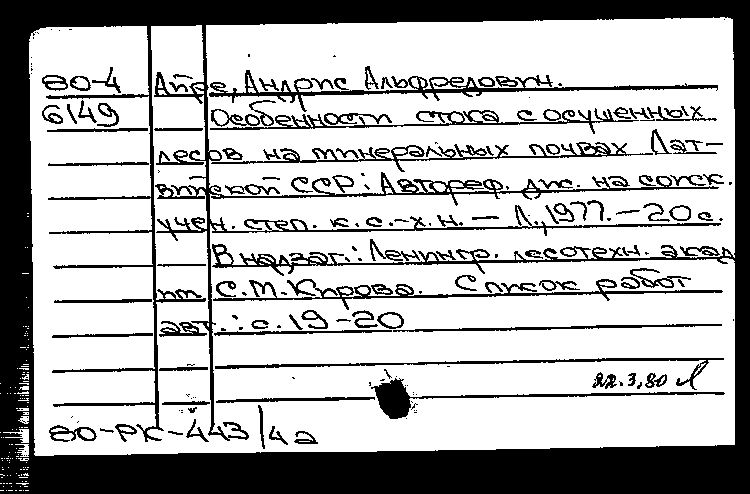 80-4 Айре, Андрис Альфредович.
6149 Особенности стока с осушенных
лесов на минеральных почвах Лат-
вийской ССР: Автореф. дис. на соиск.
учен. степ. к. с.-х. н. – Л., 1977. – 20 с.
В надзаг.: Ленингр. лесотехн. акад
им С. М. Кирова. Список работ
авт.: с. 19-20
22.3.80
80-РК-443/4а